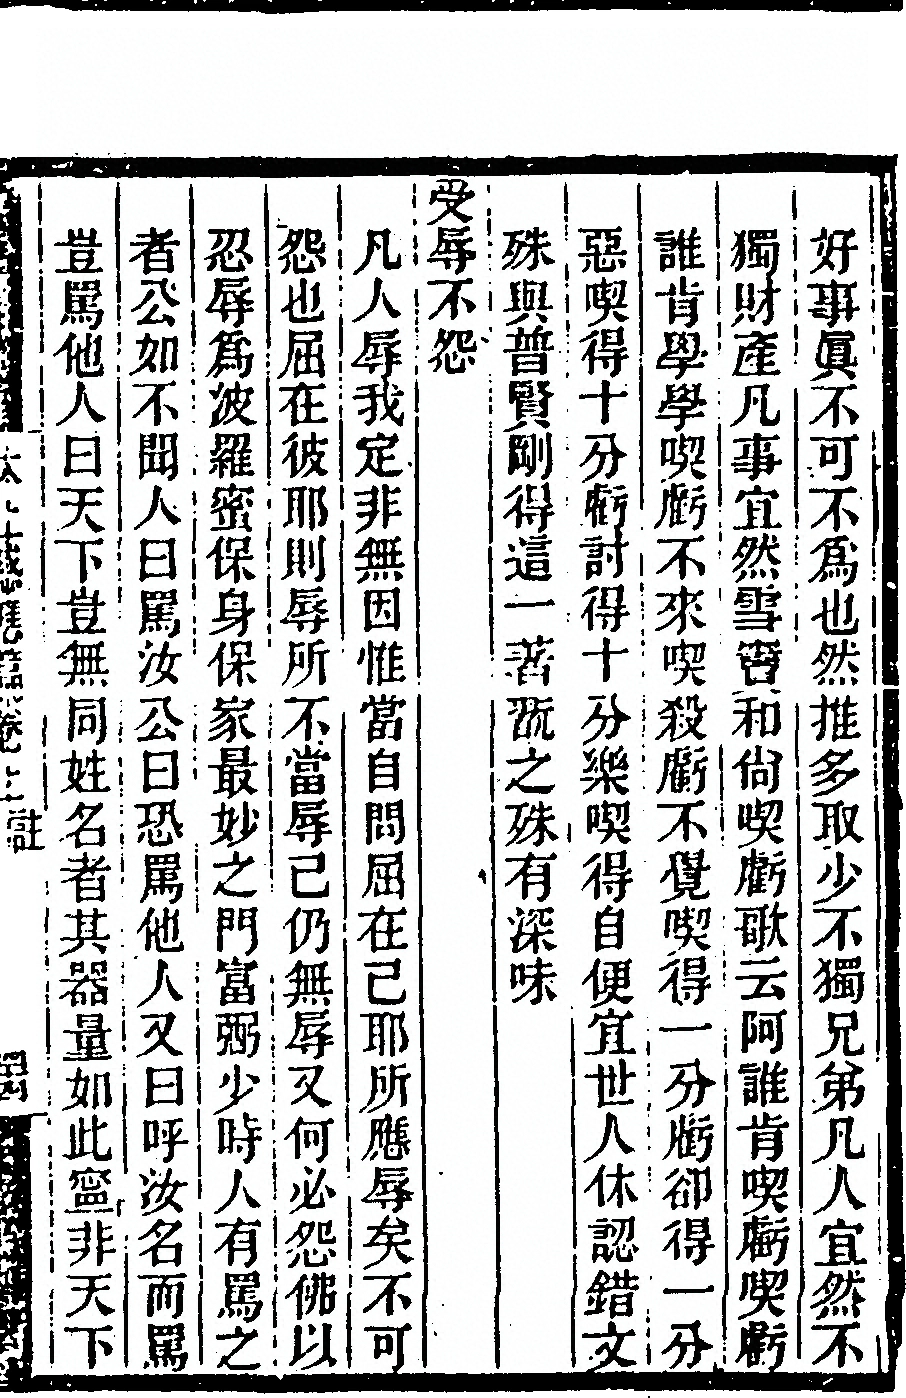 好事眞不可不爲也然推多取少不獨兄弟凡人宜然不
獨財產凡事宜然雪窗和尙喫虧歌云阿誰肯喫虧喫虧
誰肯學學喫虧不來喫殺虧不覺喫得一分虧卻得一分
惡喫得十分虧討得十分樂喫得自便宜世人休認錯文
殊與普賢剛得這一著翫之殊有深味
受辱不怨
凡人辱我定非無因惟當自問屈在己耶所應辱矣不可
怨也屈在彼耶則辱所不當辱己仍無辱又何必怨佛以
忍辱爲波羅蜜保身保家最妙之門富弼少時人有罵之
者公如不聞人曰罵汝公曰恐罵他人又曰呼汝名而罵
豈罵他人曰天下豈無同姓名者其器量如此寍非天下
太上感應篇卷上 註